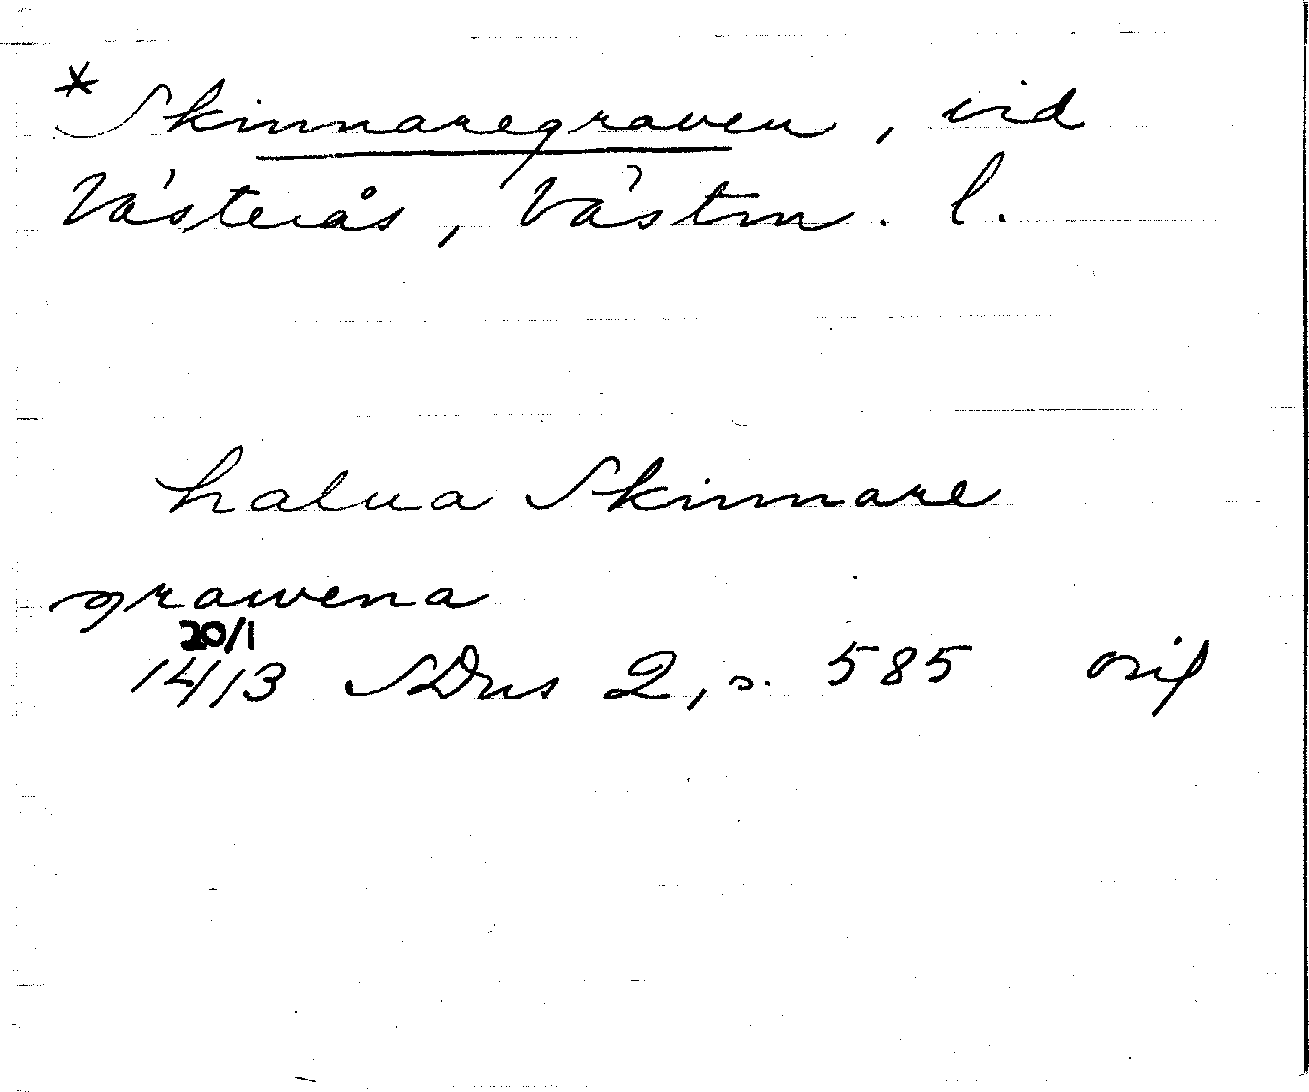 *Skinnaregraven, vid
Västerås, Västm. l.
halua Skinnare
grawena
20/1
1413 SDns 2, s. 585 orig